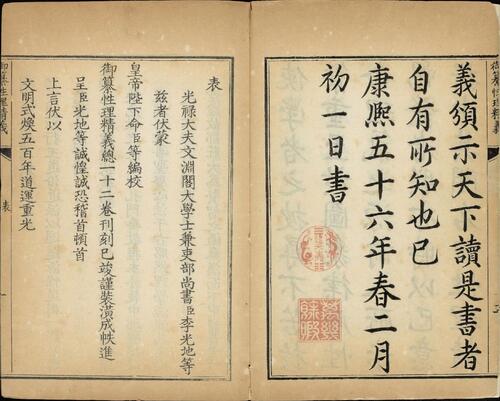 義頒示天下讀是書者
自有所知也已
康熙五十六年春二月
初一日書
表
光祿大夫文淵閣大學士兼吏部尚書臣李光地等
茲者伏蒙
皇帝陛下命臣等編校
御纂性理精義總一十二卷刊刻已竣謹裝潢成帙進
呈臣光地等誠惶誠恐稽首頓首
上言伏以
文明式煥五百年道運重光
御纂性理精義
表
一